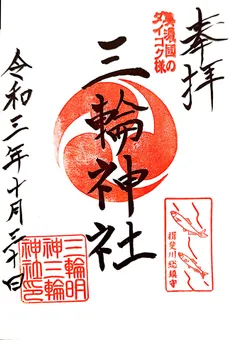 奉拝
美濃國の
ダイコク様
三輪神社
令和三年十月三十日
三輪明
神三輪
神社印
揖斐川総鎮守